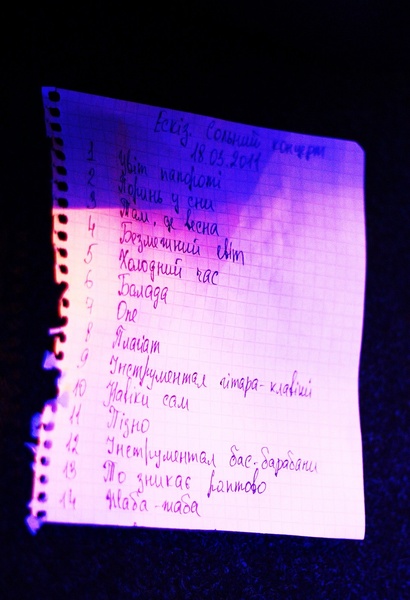 Ескіз. Сольний концерт
18.03.2011
1 Цвіт папороті
2 Поринь у сни
3 Там, де весна
4 Безмежний світ
5 Холодний час
6 Балада
7 One
8 Плагіат
9 Інструментал гітара-клавіші
10 Навіки сам
11 Пізно
12 Інструментал бас-барабани
13 То зникає раптово
14 Жаба-жаба